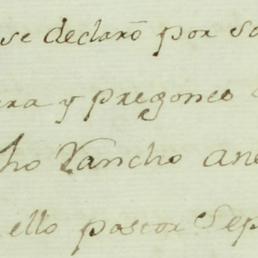 se declaró por s
ra y pregoneo
ho Rancho ane
ello pastor Sep